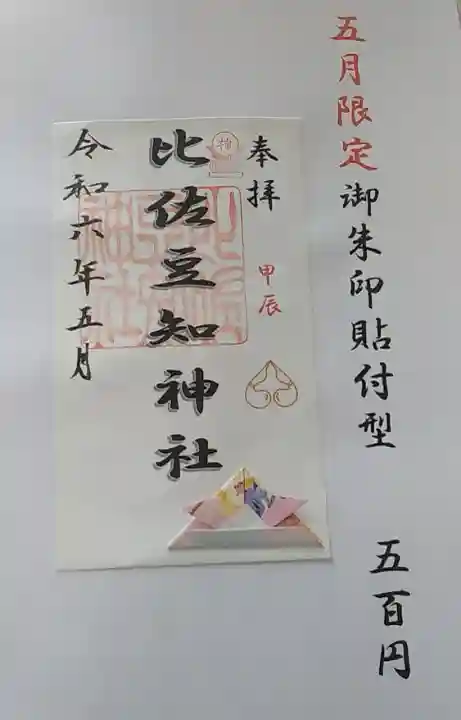 五月限定御朱印貼付型
五百円
奉拝
甲辰
比佐豆知神社
令和六年五月